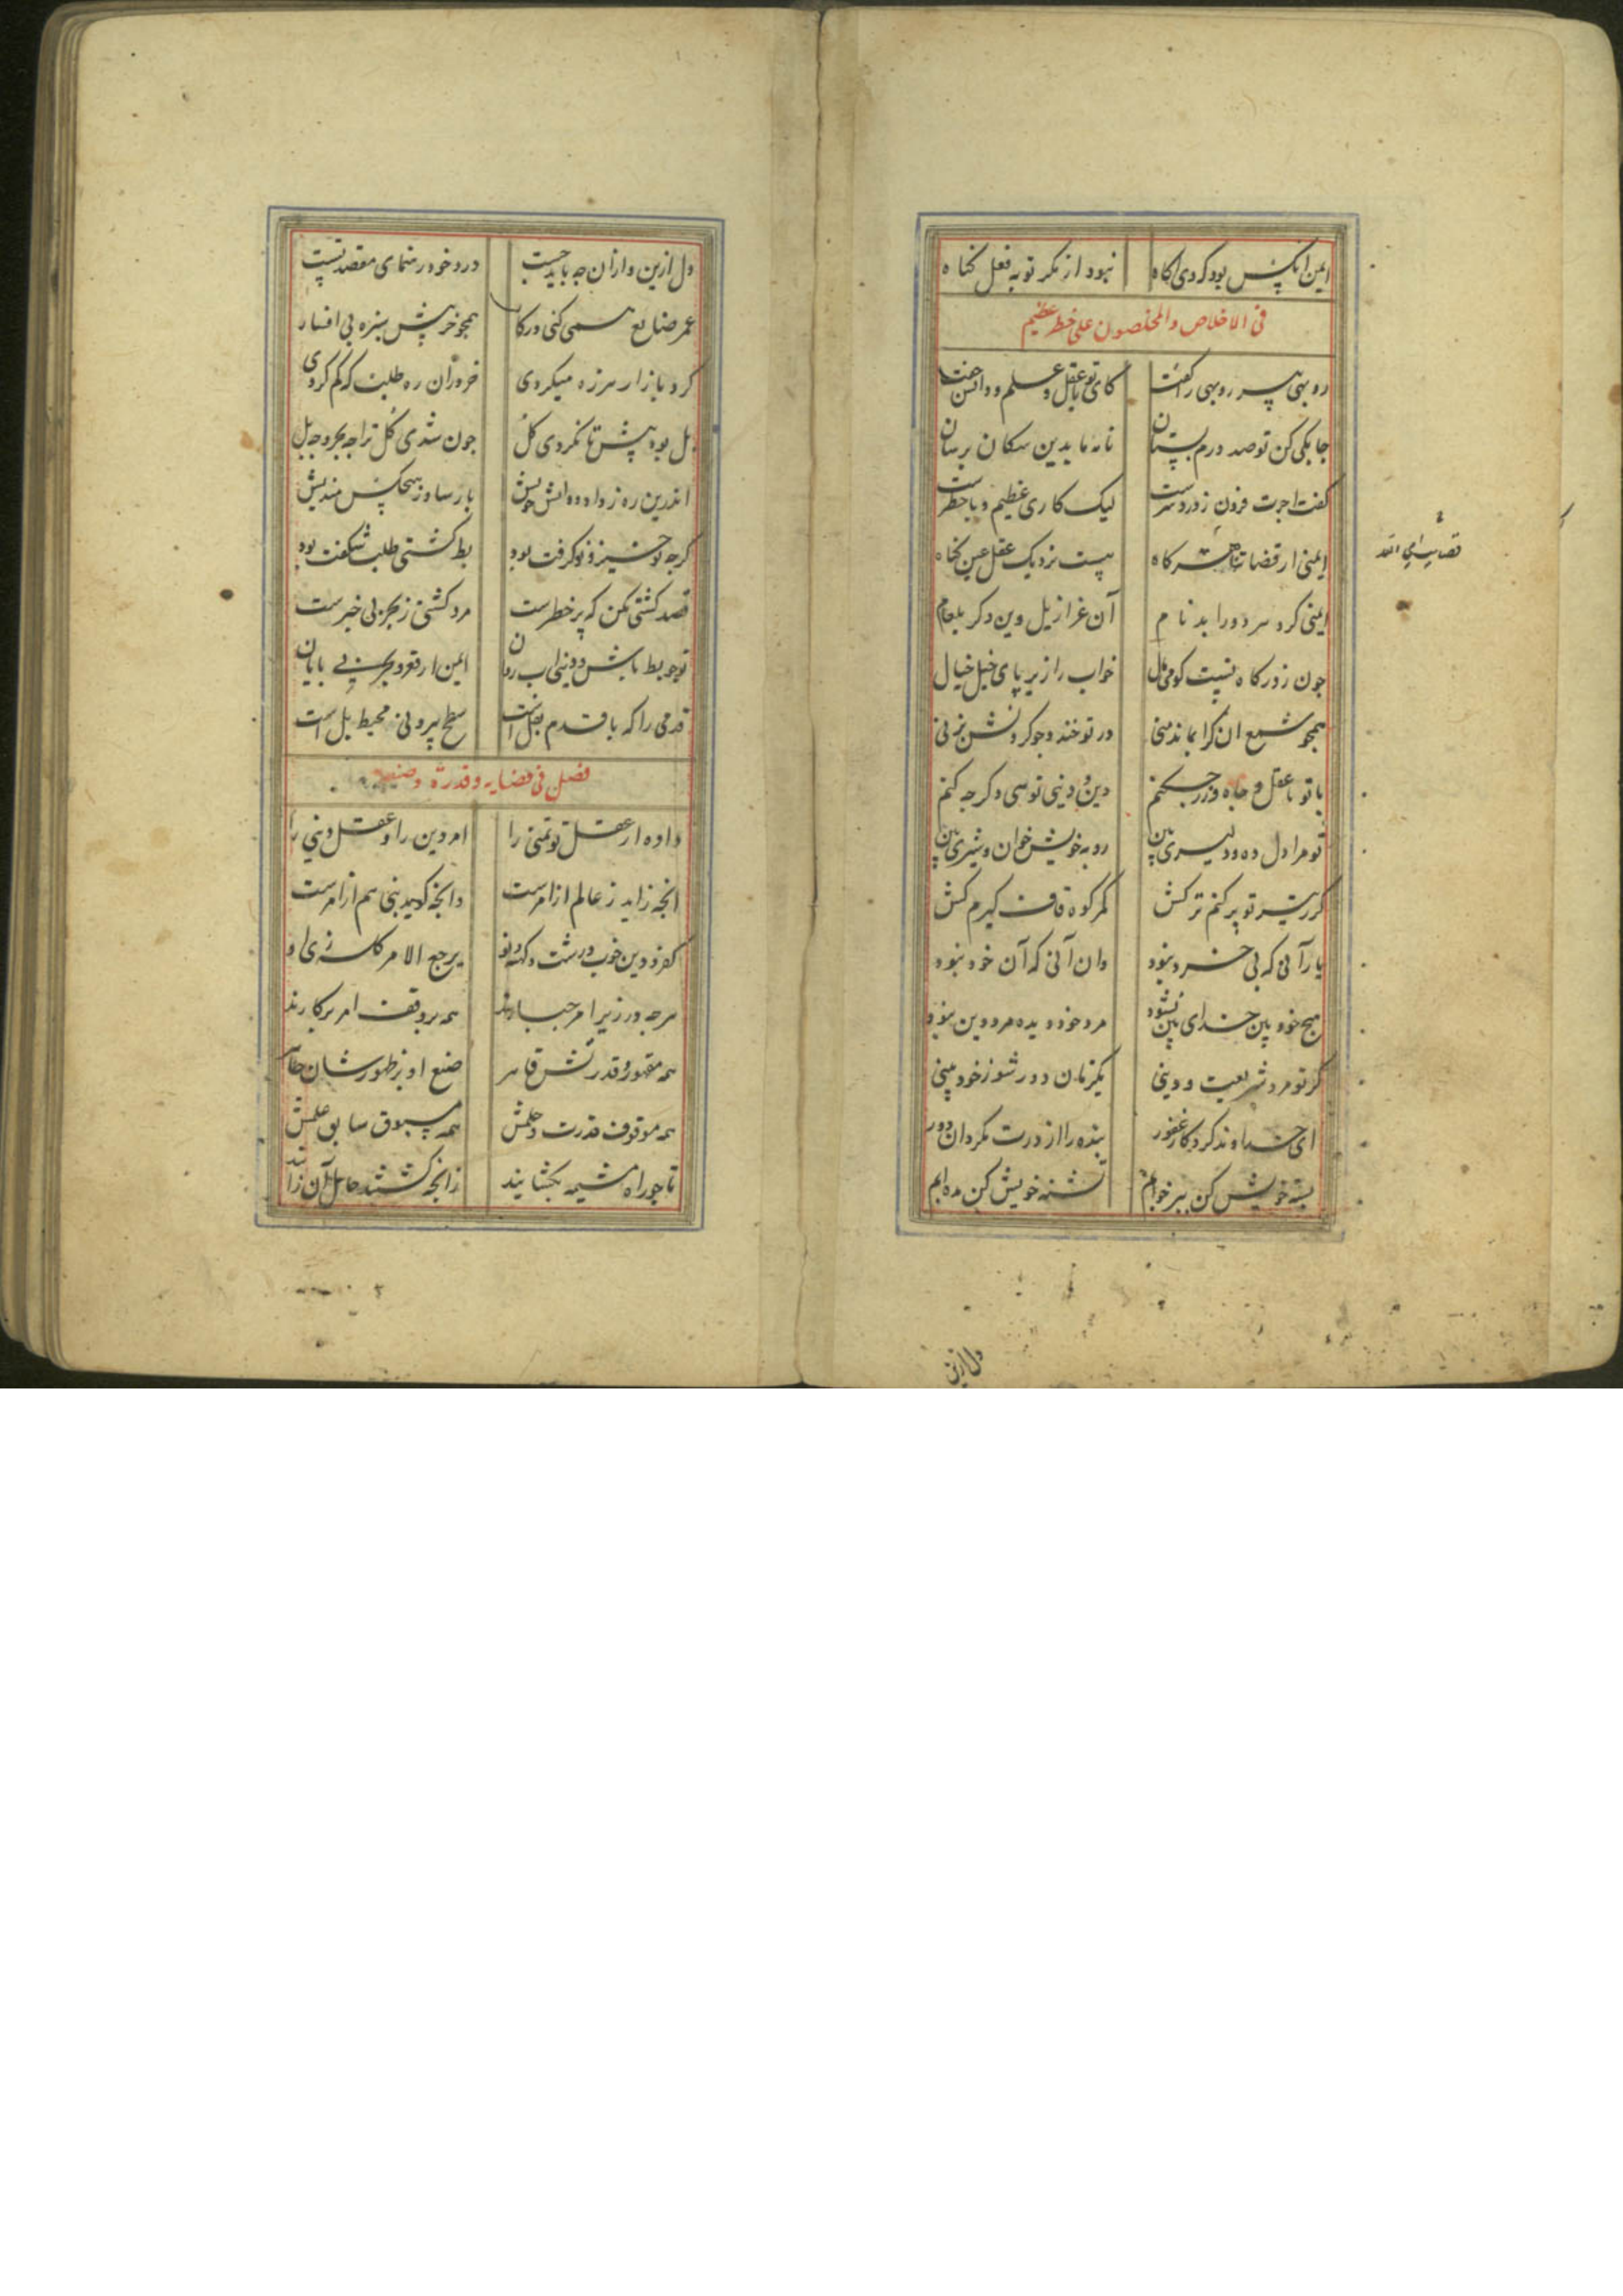 ایمن انکس بود کردی اکاه نبود از مکر تو به فعل کناه
فی الاخلاص والمخلصون علی خطر عظیم
روبهی پیر روبهی را کفت کای تو با عقل و علم و دانش جفت
جابکی کن تو صد درم بستان نامه ما بدین سکان برسان
کفت اجرت فزون ز درد سرست لیک کاری عظیم و باخطرست
ایمنی از قضات ای الله هست نزدیک عقل عین کناه
ایمنی کرد هر دو را بد نام آن عزازیل وین دکر بلعام
جون ز درکاه نیست کو می نال خواب را زیر پای خیل خیال
همجو شمع ان کرا نماند منی در تو خندد جو کردنش بزنی
با تو با عقل و جاه و زر جکنم دین و دینی توسی و کرجه کنم
تو مرا دل ده و دلیری بین روبه خویش خوان و شیری بین
کر ز تیر تو پر کنم ترکش کمر کوه قاف کیرم کش
یار آنی که بی خرد نبود وان آنی که آن خود نبود
هیج خود بین خدای بین نشود مرد خود دیده مرد دین نبود
کر تو مرد شریعت و دینی یکزمان دور شو ز خود بینی
ای خداوند کردکار غفور بنده را از درت مکردان دور
بسته خویش کن ببر خوابم تشنه خویش کن مده ابم
قضایت ای الله
دل ازین
دل ازین و ازان جه باید جست درد خود رهنمای مقصد تست
عمر ضایع همی کنی در کار همجو خر پیش سبزه بی افسار
کرد بازار هرزه میکردی خر دران ره طلب که کم کردی
بل بود پیش تا نکردی کل جون شدی کل ترا جه بحر و جه پل
اندرین ره ز داد و دانش خویش بار ساز و ز هیجکس مندیش
کرجه نوخیز و نوکرفت بود بط کشتی طلب شکفت بود
قصد کشتی مکن که پر خطرست مرد کشتی ز بحر بی خبرست
تو جو بط باش و دینی اب روان ایمن از قعر بحر بی پایان
قدمی را که با قدم بقل است سطح بیرونی محیط پل است
فصل فی قضایه و قدرته و صنعه
داده از عقل تو تمنی را امر دین را و عقل دینی را
انجه زاید ز عالم از امرست وانجه کوید نبی هم از امرست
کفر و دین خوب و زشت و کهنه و نو یرجع الامر کله زی او
هرجه در زیر امر جبارند همه بر وفق امر بر کارند
همه مقهور و قدرتش قاهر صنع او بر ظهورشان ظاهر
همه موقوف قدرت و حلمش همه مسبوق سابق علمش
تا جو راه مشیمه بکشایند زانجه کشتند حامل آن زایند